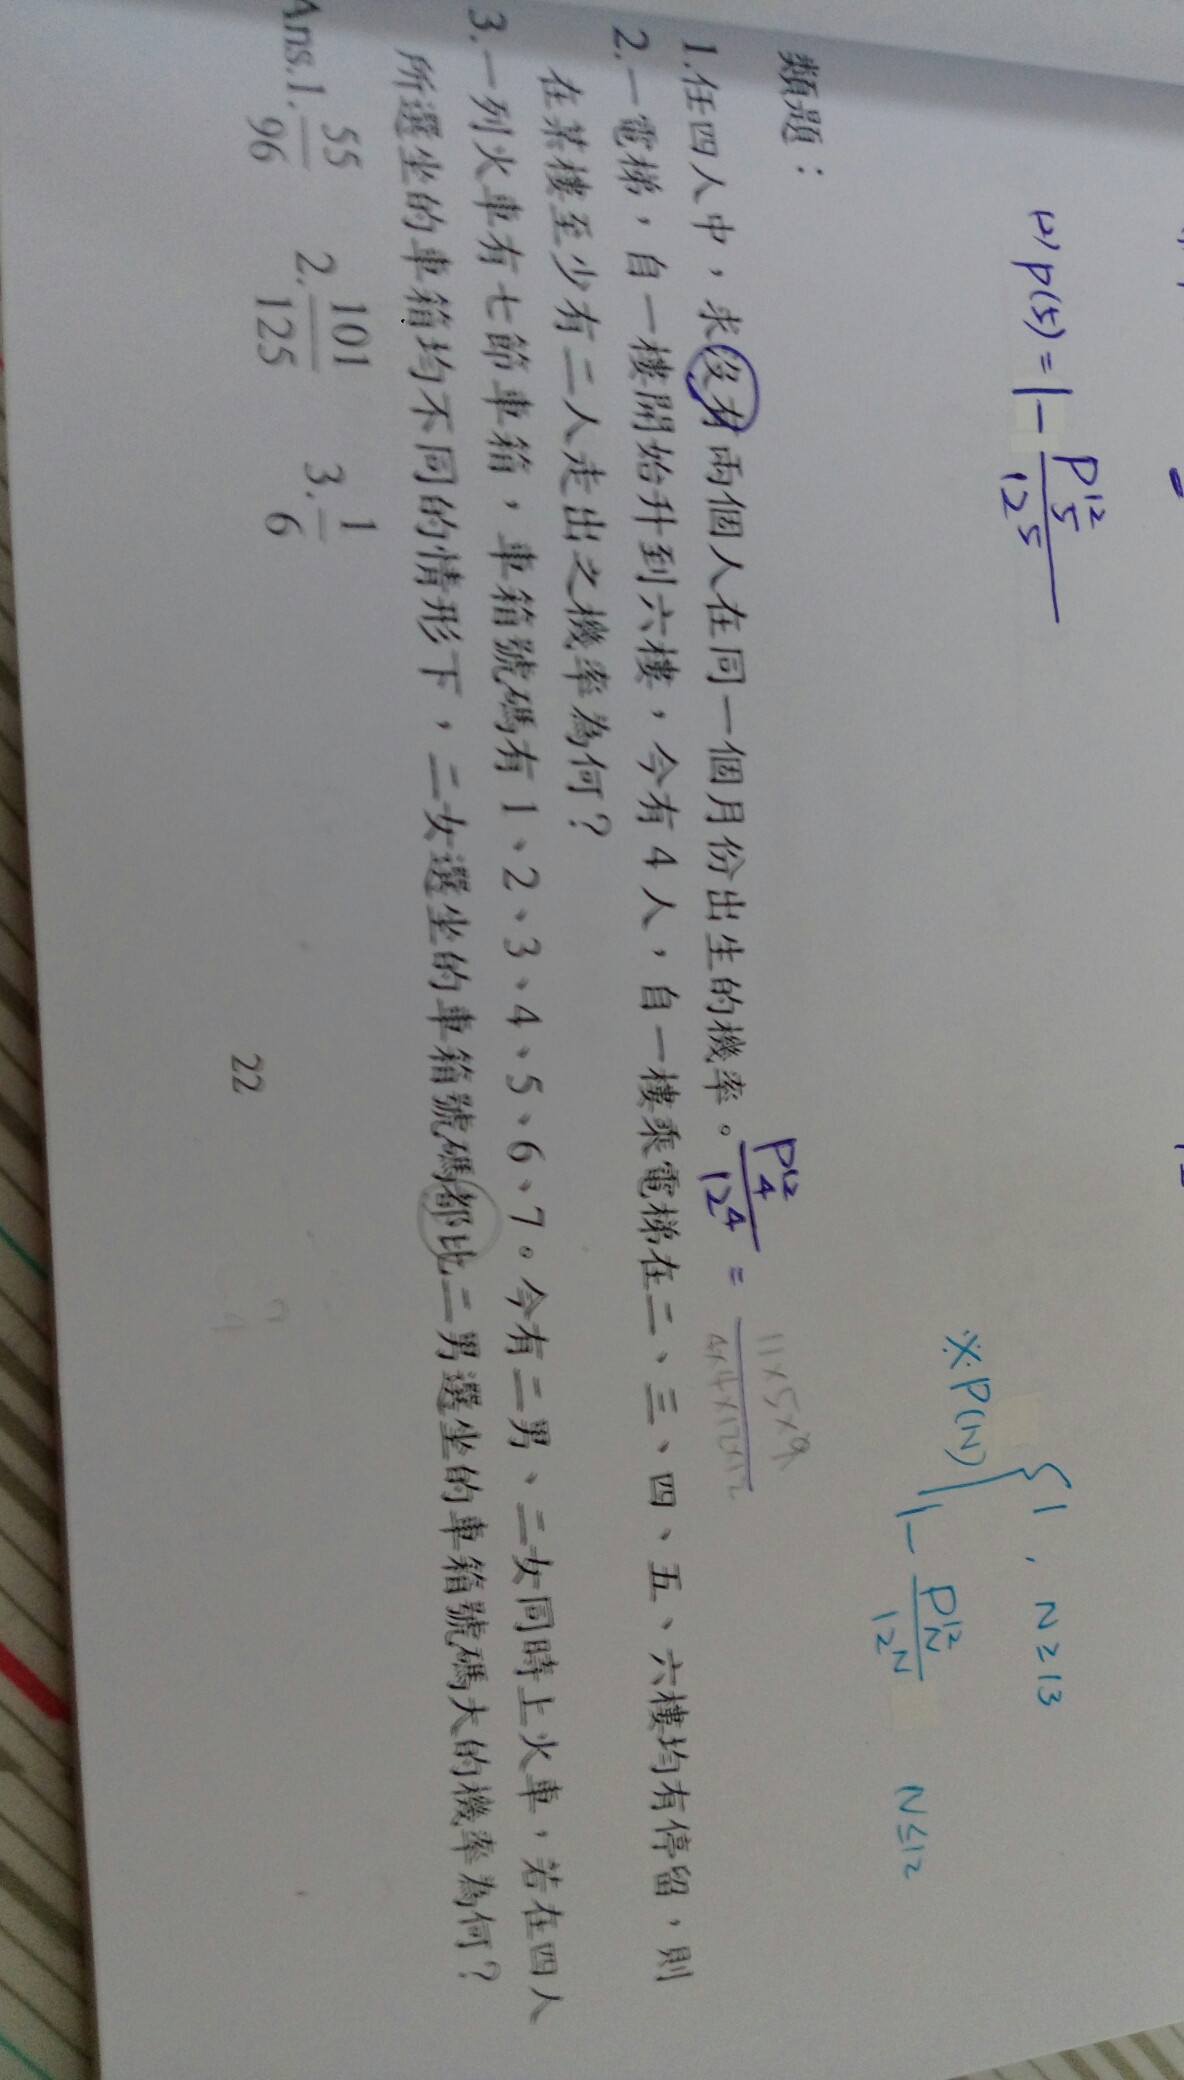 (2) P(5) = 1 - P^12_5 / 12^5
※P(N) { 1 , N≥13
1 - P^12_N / 12^N N≤12
類題：
1.任四人中，求沒有兩個人在同一個月份出生的機率。 P^12_4 / 12^4 = 11×5×9 / 4×4×12×12
2.一電梯，自一樓開始升到六樓，今有4人，自一樓乘電梯在二、三、四、五、六樓均有停留，則
在某樓至少有二人走出之機率為何？
3.一列火車有七節車箱，車箱號碼有1、2、3、4、5、6、7。今有二男、二女同時上火車，若在四人
所選坐的車箱均不同的情形下，二女選坐的車箱號碼都比二男選坐的車箱號碼大的機率為何？
Ans.1. 55/96 2. 101/125 3. 1/6
22